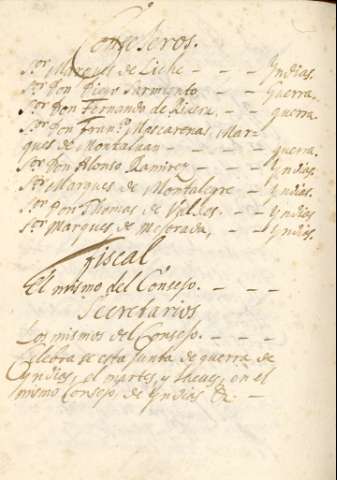 Consejeros.
Sor Marques de Liche - - - Yndias.
Sor Don Diego Sarmiento - - guerra.
Sor Don Fernando de Rivera. - - guerra.
Sor Don Franco Mascarenas, Mar-
ques de Montaluan - - - guerra.
Sor Don Alonso Ramirez - - Yndias.
Sor Marques de Montalegre - - Yndias.
Sor Don Thomas de Valdes. - - Yndias
Sor Marques de Mejorada, - - Yndias.
Fiscal
El mismo del Consejo. - - -
Secretarios
Los mismos del Consejo. - - - -
Celebra se esta Junta de guerra de
Yndias, el martes, y Jueves, en el
mismo Consejo, de Yndias &. -